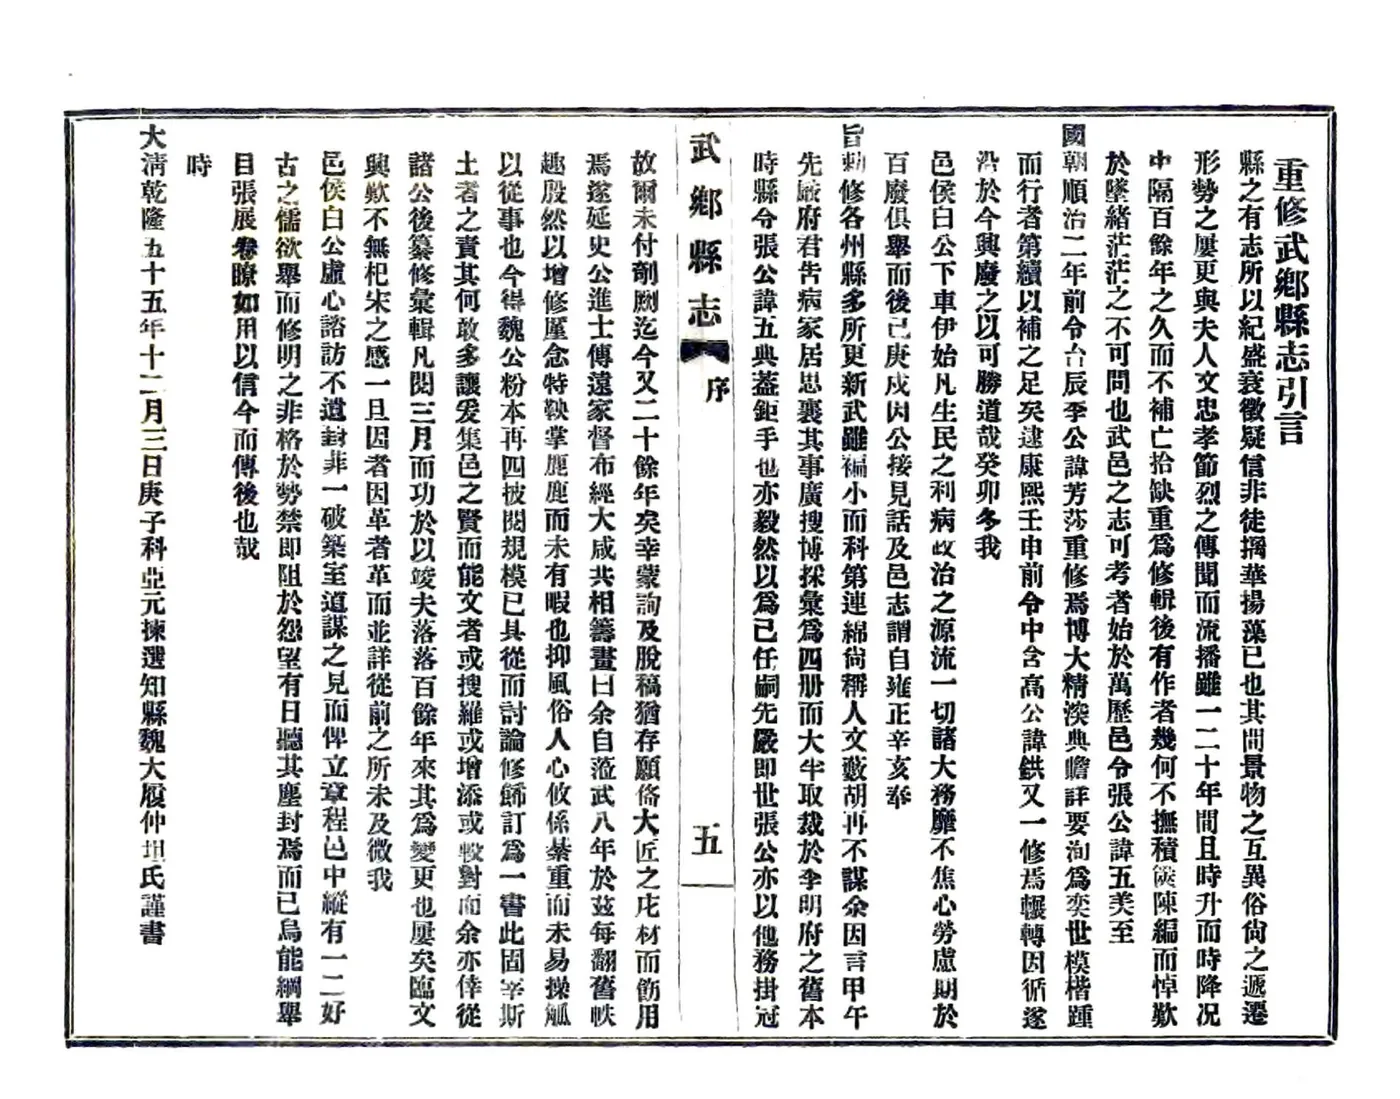 重修武鄉縣志引言
縣之有志所以紀盛衰徵疑信非徒摛華揚藻已也其間景物之互異俗尙之遞遷
形勢之屢更與夫人文忠孝節烈之傳聞而流播雖一二十年間且時升而時降况
中隔百餘年之久而不補亡拾缺重爲修輯後有作者幾何不撫積牘陳編而悼歎
於墜緒茫茫之不可問也武邑之志可考者始於萬歷邑令張公諱五美至
國朝順治二年前令台辰李公諱芳莎重修焉博大精深典贍詳要洵爲奕世模楷踵
而行者第續以補之足矣逮康熙壬申前令中含高公諱鉷又一修焉輾轉因循遂
沿於今興廢之以可勝道哉癸卯冬我
邑侯白公下車伊始凡生民之利病政治之源流一切諸大務靡不焦心勞慮期於
百廢俱舉而後已庚戍因公接見話及邑志謂自雍正辛亥奉
旨勅修各州縣多所更新武雖褊小而科第連綿尙稱人文藪胡再不謀余因言甲午
先嚴府君吿病家居思襄其事廣搜博採彙爲四册而大半取裁於李明府之舊本
時縣令張公諱五典蓋鉅手也亦毅然以爲己任嗣先嚴即世張公亦以他務掛冠
武鄉縣志
序
五
故爾未付剞劂迄今又二十餘年矣幸蒙詢及脫稿猶存願俻大匠之庀材而飭用
焉遂延史公進士傳遠家督布經大咸共相籌畫曰余自蒞武八年於茲每翻舊帙
趣殷然以增修厪念特鞅掌鹿鹿而未有暇也抑風俗人心攸係綦重而未易操觚
以從事也今得魏公粉本再四披閱規模已具從而討論修飾訂爲一書此固宰斯
土者之責其何敢多讓爰集邑之賢而能文者或搜羅或增添或讐對而余亦倖從
諸公後纂修彙輯凡閱三月而功於以竣夫落落百餘年來其爲變更也屢矣臨文
興歎不無杞宋之感一旦因者因革者革而並詳從前之所未及微我
邑侯白公虛心諮訪不遺封菲一破築室道謀之見而俾立章程邑中縱有一二好
古之儒欲舉而修明之非格於勢禁即阻於怨望有日聽其塵封焉而已烏能綱舉
目張展卷瞭如用以信今而傳後也哉
時
大淸乾隆五十五年十二月三日庚子科亞元揀選知縣魏大履仲坦氏謹書